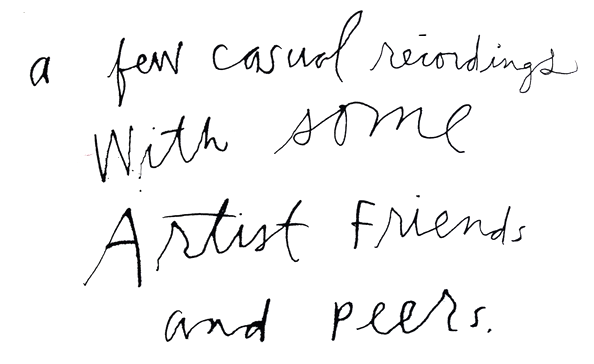 a few casual recordings
With some
Artist Friends
and peers.